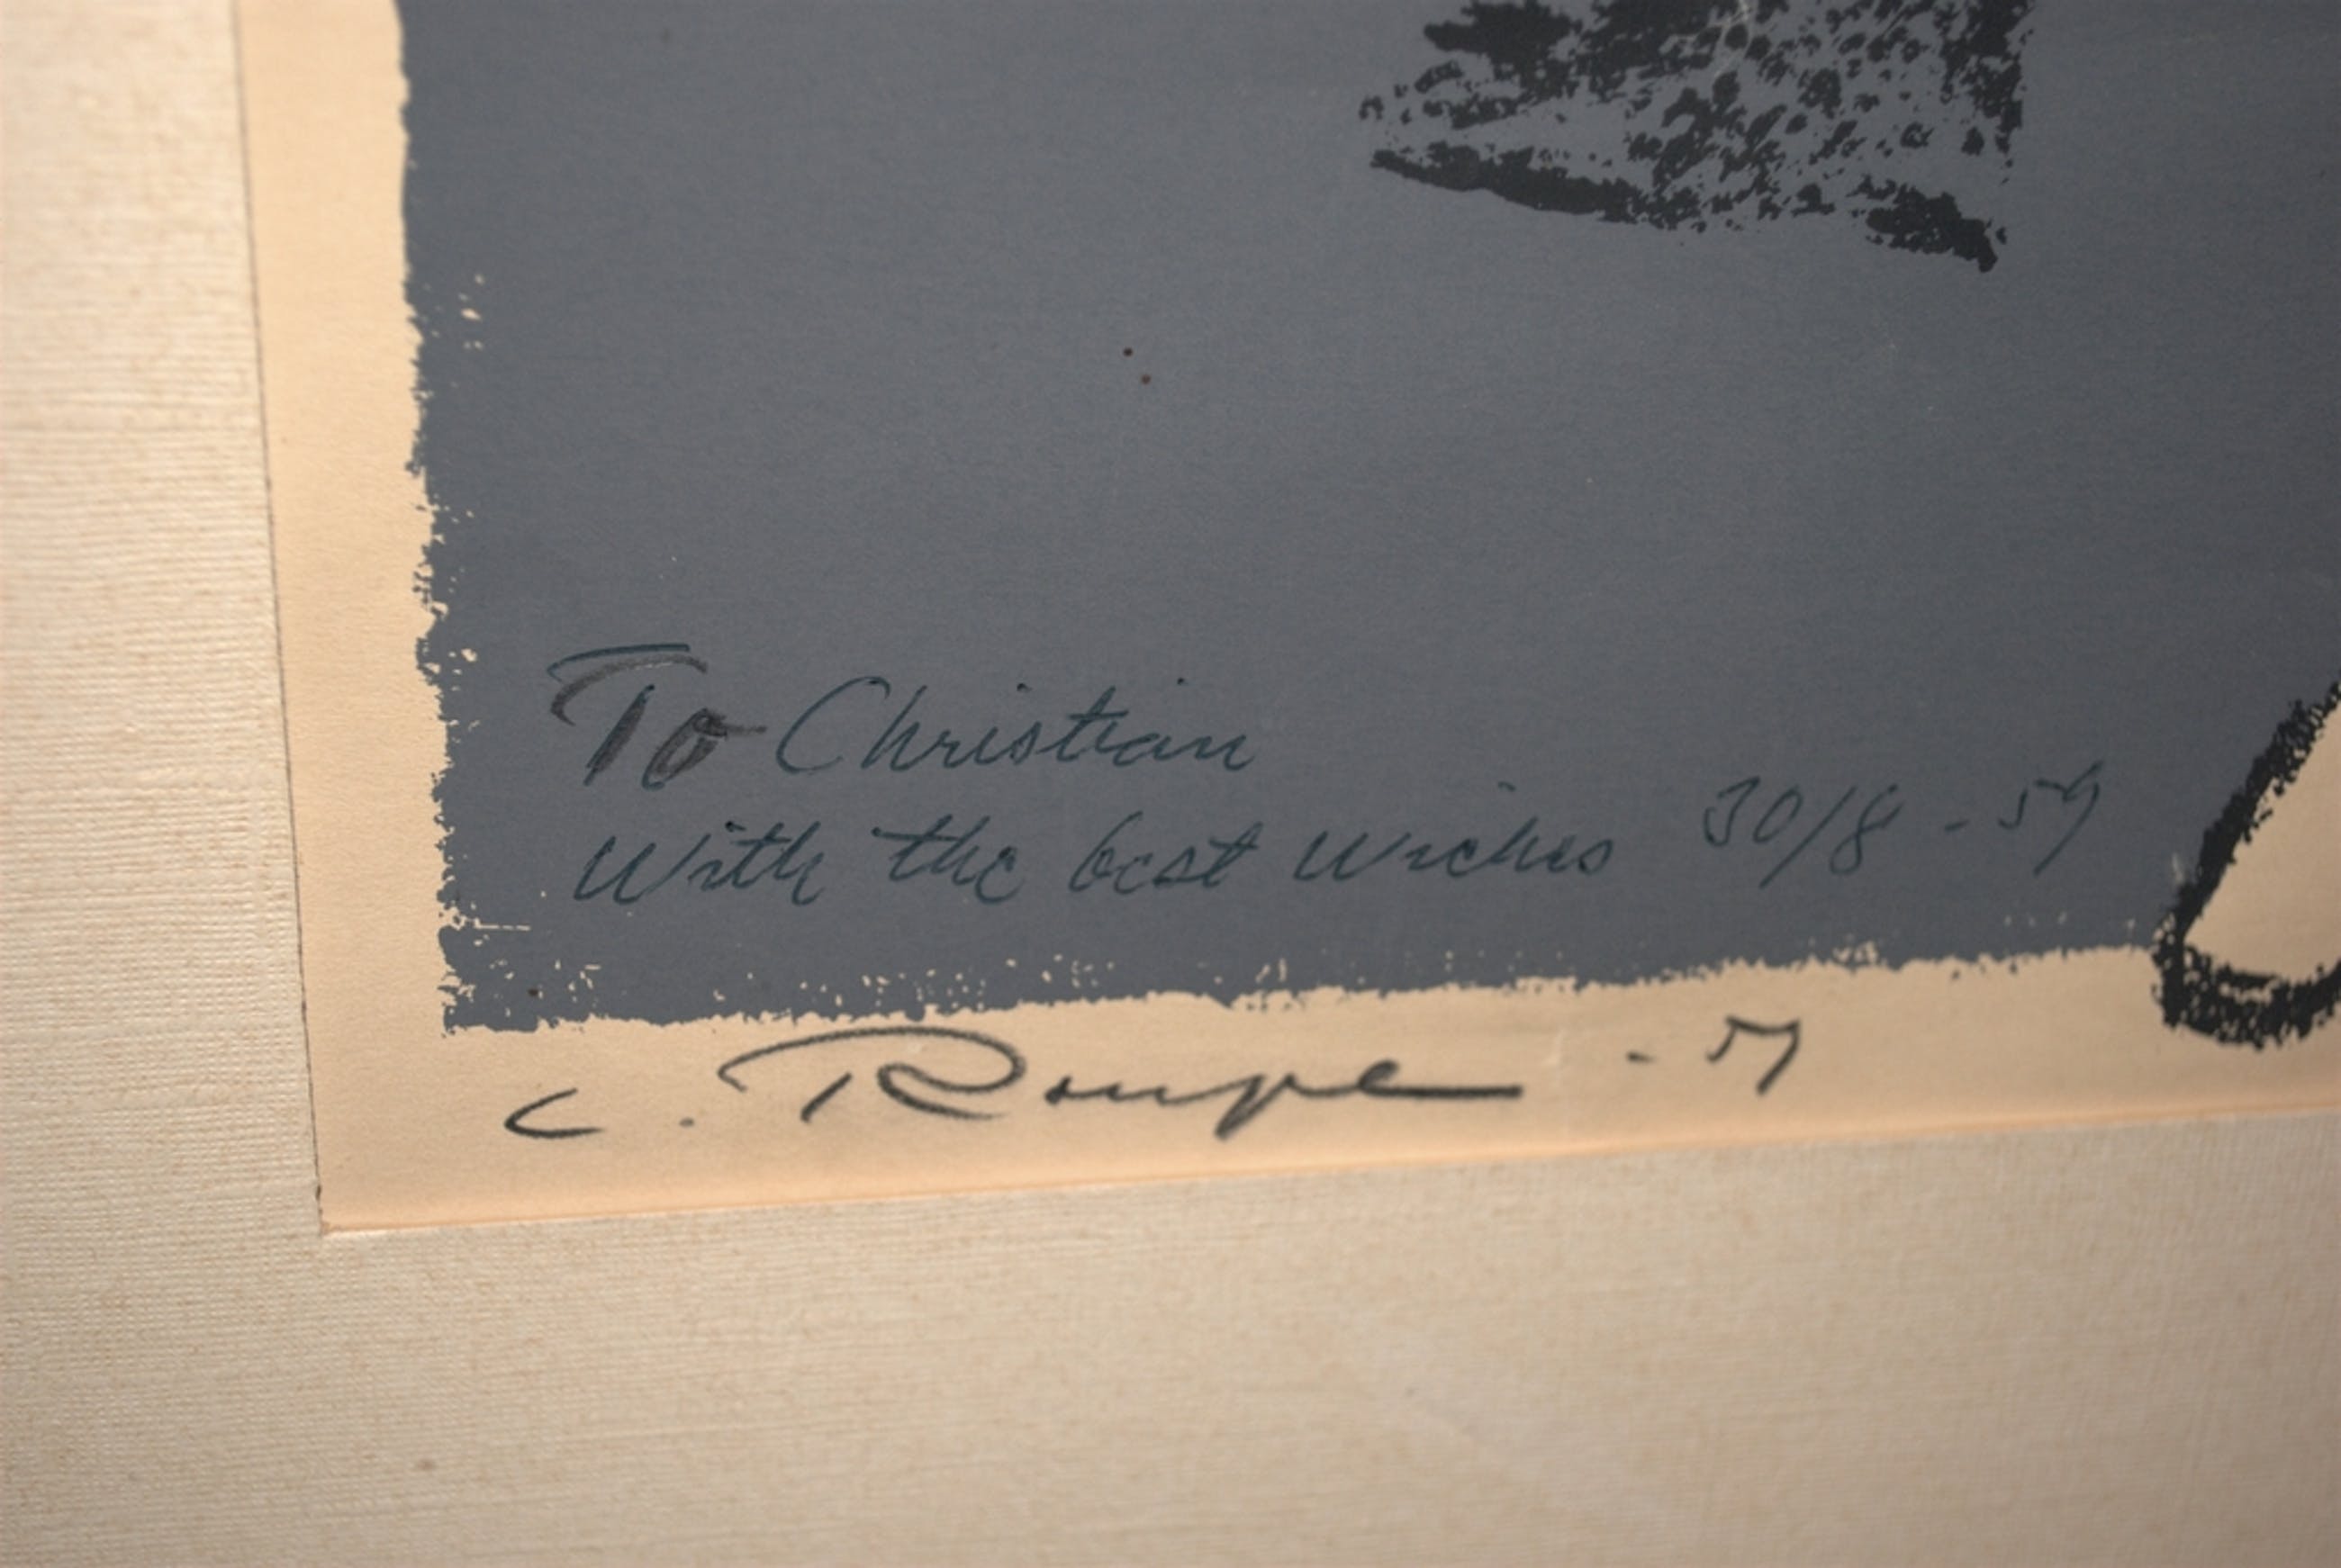 To Christian
With the best wiches 30/8 - 59
C. Roupe - 57